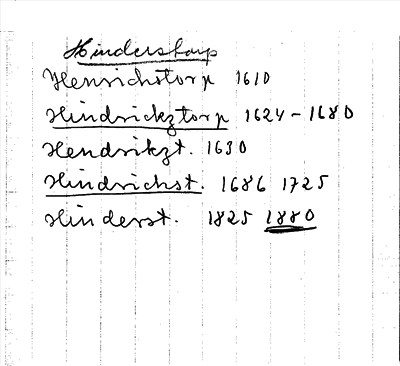 Hinderstorp
Henrichstorp 1610
Hindrickztorp 1624-1680
Hendrikzt. 1630
Hindrichst. 1686 1725
Hinderst. 1825 1880